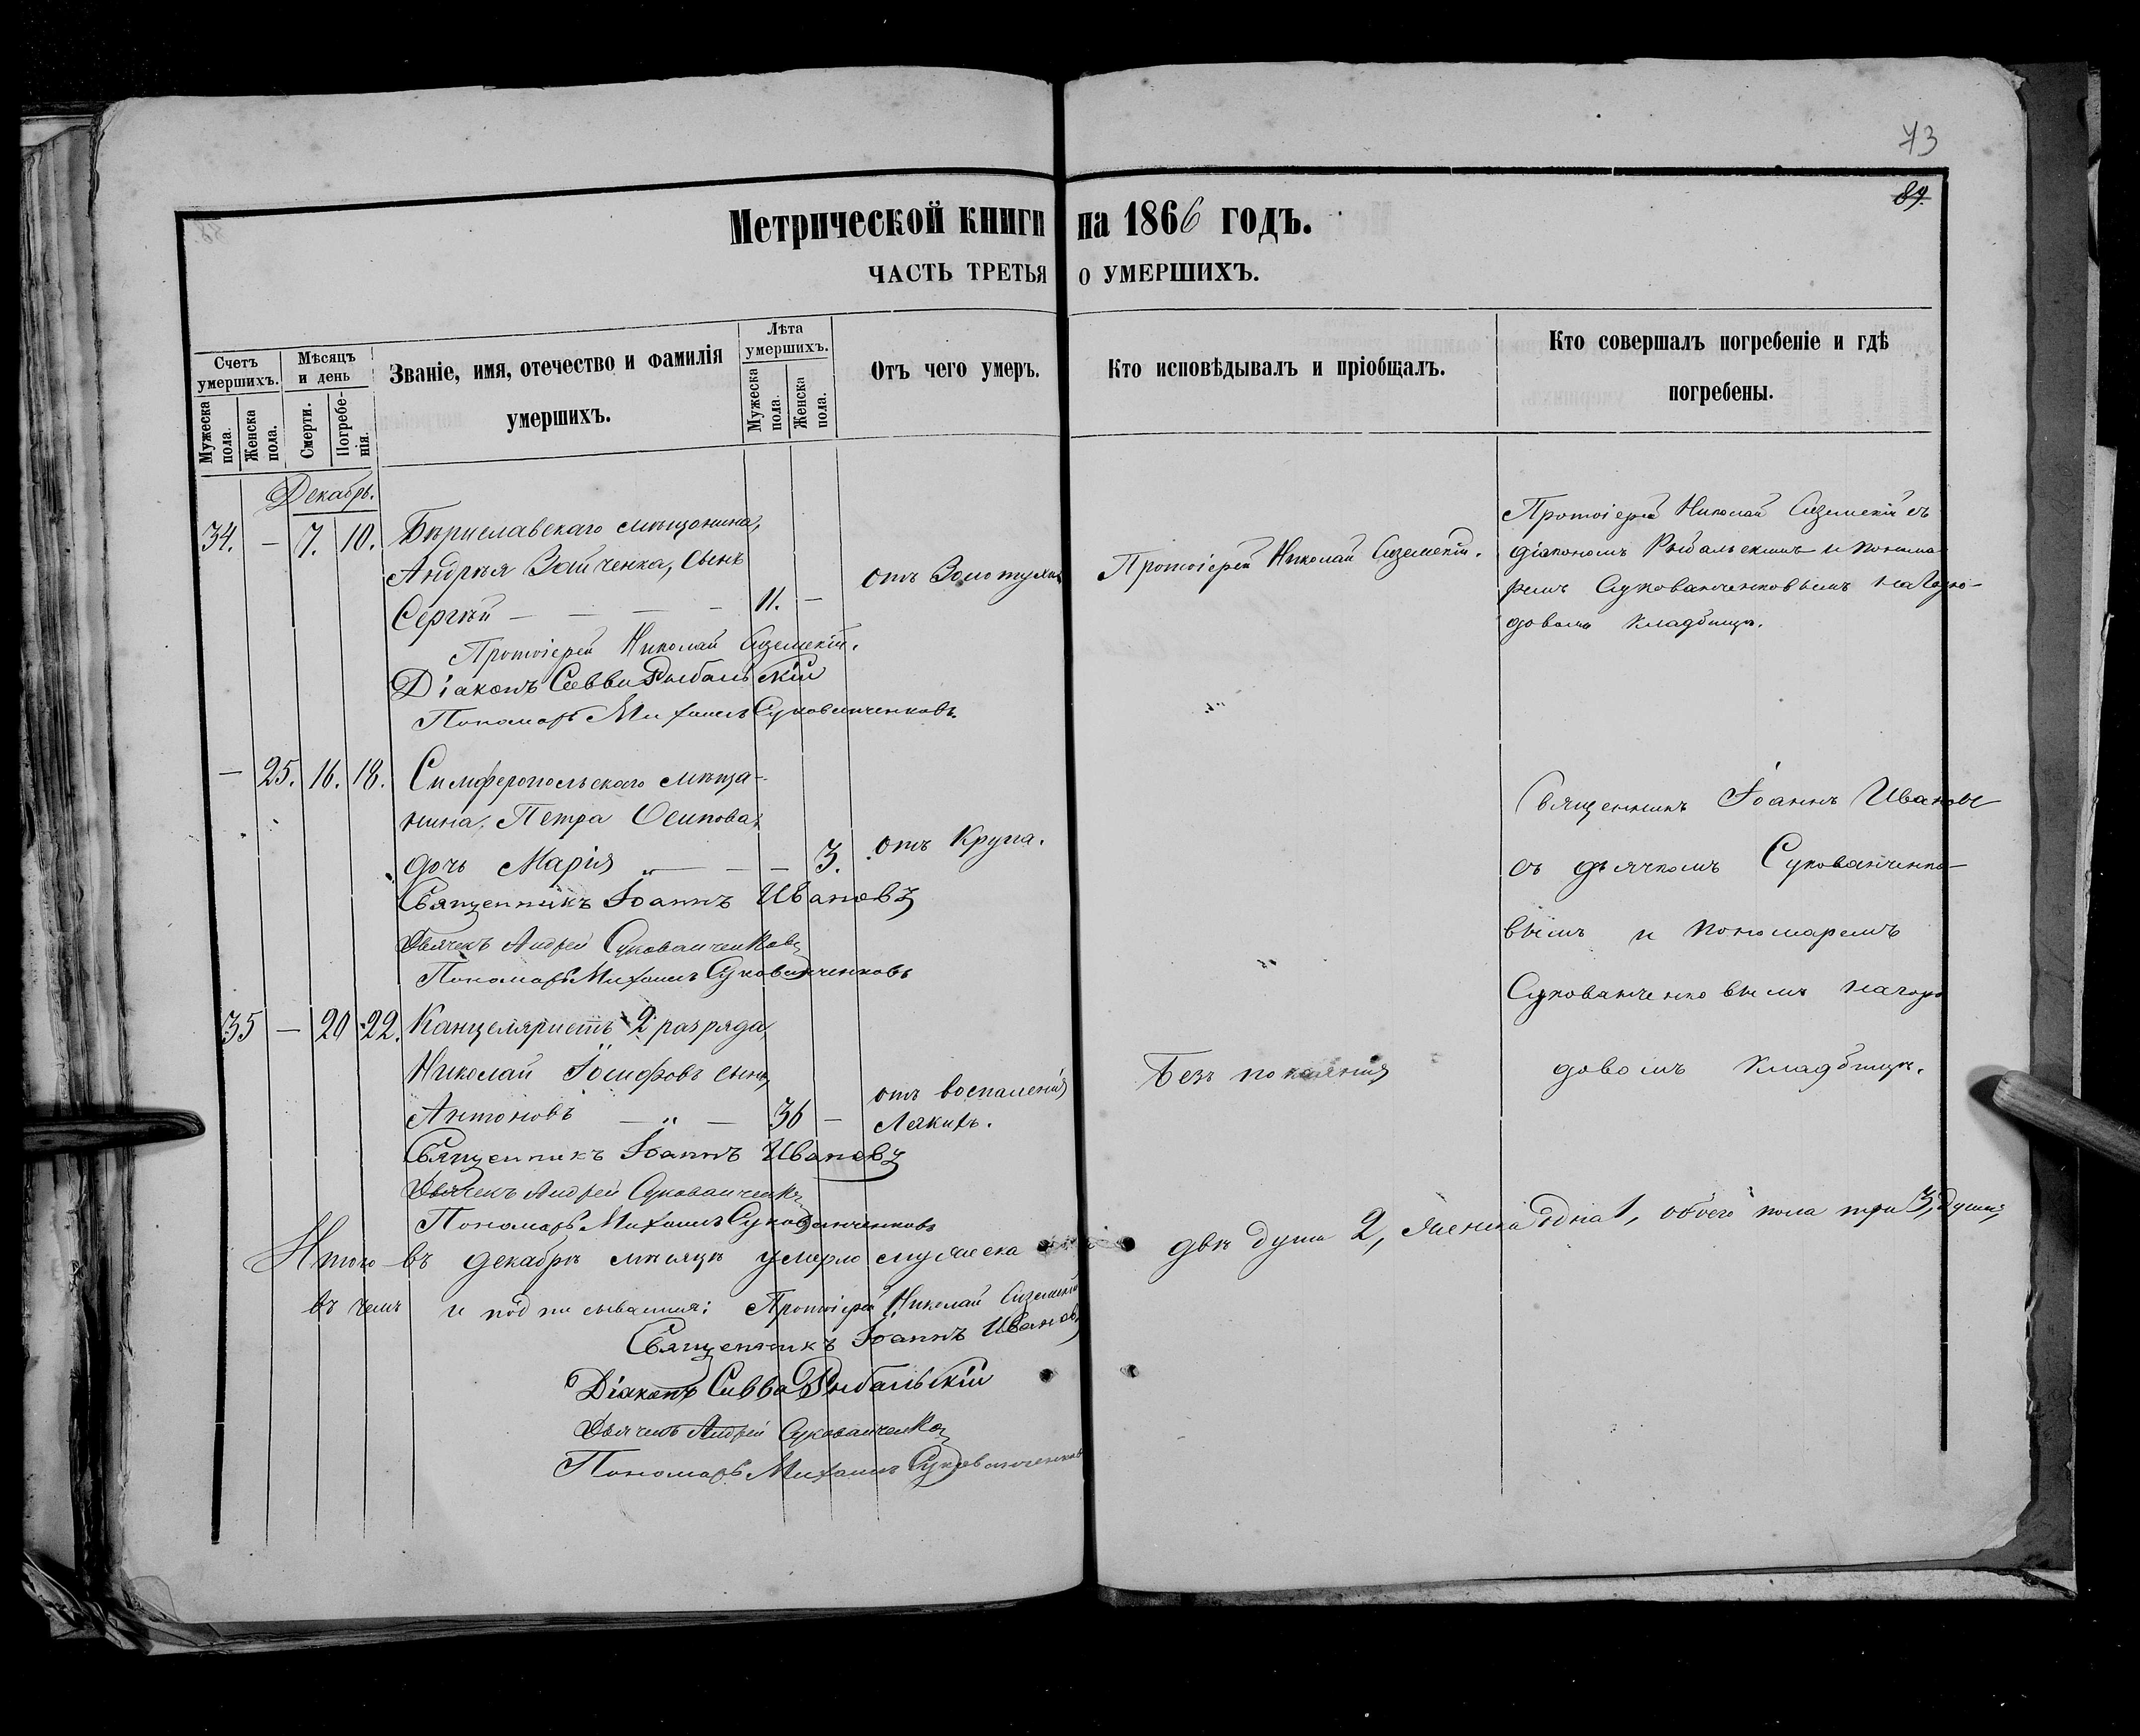 73
89.
Метрической книги на 1866 годъ.
ЧАСТЬ ТРЕТЬЯ о УМЕРШИХЪ.
Счетъ умершихъ.
Мужеска пола.
Женска пола.
Мѣсяцъ и день
Смерти.
Погребенія.
Званіе, имя, отечество и фамилія умершихъ.
Лѣта умершихъ.
Мужеска пола.
Женска пола.
Отъ чего умеръ.
Кто исповѣдывалъ и пріобщалъ.
Кто совершалъ погребеніе и гдѣ погребены.
Декабрь.
34. — 7. 10. Бериславскаго мѣщонина,
Андрея Зайченка, сынъ
Сергѣй — — — — 11. —
отъ Золотухи
Протоіерей Николай
Протоіерей Николай съ
діакономъ Рыбальскимъ и понома
ремъ Сукованченковымъ на Горо-
довомъ кладбищѣ.
Протоіерей Николай
Діаконъ Савва Рыбальскій
Пономарь Михаилъ Сукованченковъ.
— 25. 16. 18. Симферопольскаго мѣща-
нина, Петра Осипова,
дочь Марія „ — — — 3.
отъ Крупа.
Священникъ Іоаннъ Ивановъ
съ дьячкомъ Сукованченко-
вымъ и пономаремъ
Сукованченковымъ на горо
довомъ кладбищѣ.
Священникъ Іоаннъ Ивановъ
Дьячекъ Андрей Сукованченковъ
Пономарь Михаилъ Сукованченковъ
35 — 20 22. Канцеляристъ 2 разряда,
Николай Іосифовъ сынъ,
Антоновъ — „ — 36 —
отъ воспаленія
Легкихъ.
Безъ покаянія
Священникъ Іоаннъ Ивановъ
Дьячекъ Андрей Сукованченко
Пономарь Михаилъ Сукованченковъ
Итого въ декабрѣ мѣсяцѣ умерло мужеска двѣ души 2, женска одна 1, обоего пола три 3, души,
въ чемъ и подписываемся: Протоіерей Николай
Священникъ Іоаннъ Ивановъ
Діаконъ Савва Рыбальскій
Дьячекъ Андрей Сукованченко
Пономарь Михаилъ Сукованченковъ